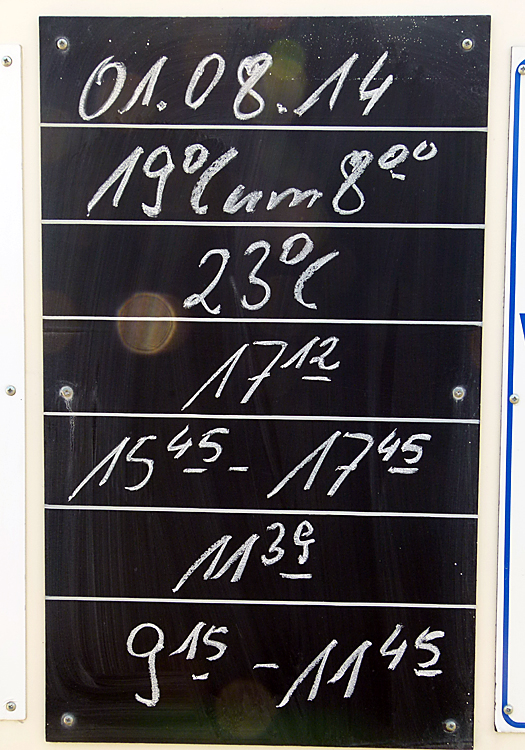 01.08.14
19°C um 8⁰⁰
23°C
17¹²
15⁴⁵ - 17⁴⁵
11³⁹
9¹⁵ - 11⁴⁵